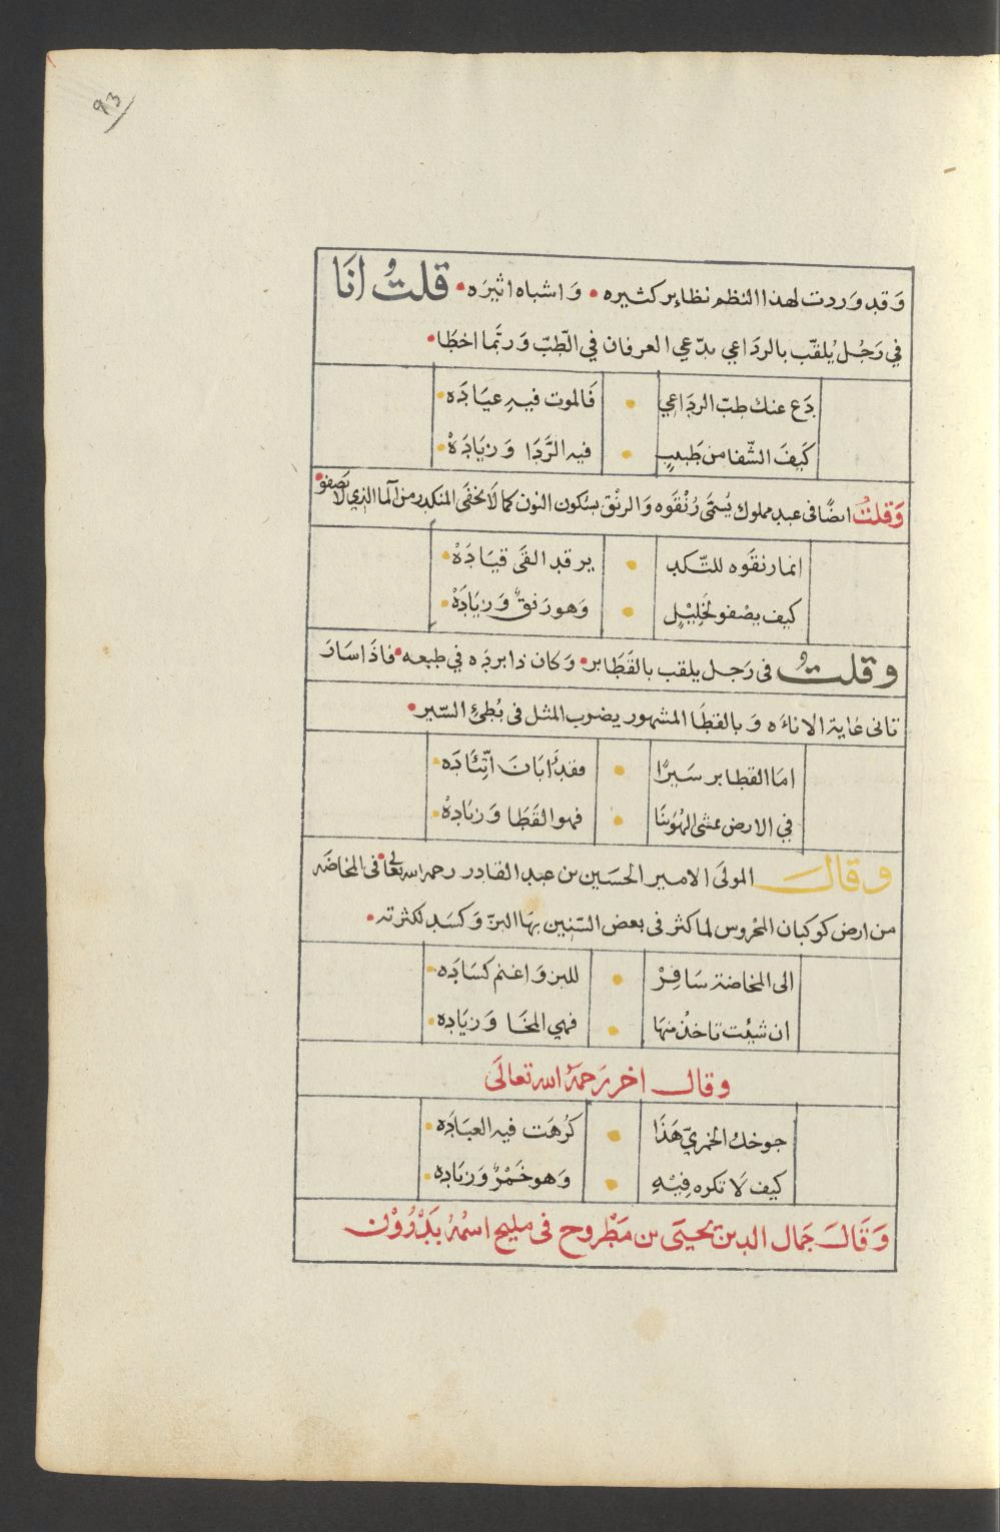 ٩٣
وَقد وَردت لهذا النظم نظاير كثيره • وَاشباه اثيرَه • قلتُ انَا
في رَجُل يُلقّب بالردَاعي يدّعي العرفان في الطّبّ وَربَّما اخطَا •
دَع عنك طبّ الردَاعي • فَالموت فيهِ عيَادَه •
كَيفَ الشّفا من طَبيبٍ • فيه الرَّدَا وَزيَادَهْ •
وَقلتُ ايضًا فى عبد مملوك يُسمَّى رُنْقَوه وَالرنْق بسُكون النون كما لَا يخفَى المنكدر من الما الذي لَا يَصفو •
انما رنقَوه للتّكد • ير قد القَى قيَادَهْ •
كيف يصْفو لخَلِيْلٍ • وَهو رَنقٌ وَزيَادَهْ •
وقلتُ فى رَجل يلقب بالقَطَابر • وَكان ذا بردَه في طبعه • فاذَا سَارَ
تانى غاية الاناءَه وَبالقطَا المشهور يضرب المثل فى بُطئ السّير •
امَا القطابر سَيرًا • فقد أَبَانَ اتّئَادَه •
في الارض يمشى الهُوَينَا • فهو القَطَا وَزيَادهْ •
وقالَ المولَى الامير الحسَين بن عبد القادر رحمه الله تعالى • فى المخاضَه
من ارض كوكبان المحْروس لما كثر فى بعض السّنِين بهَا البرّ وَكسَد لكثرته •
الى المخاضة سَافِرْ • للبر وَاغنم كسَادَه •
ان شئِت تاخذ منهَا • فهي المخَا وَزيَاده •
وقال اخر رَحمهُ الله تعالَى
جوخك الخمريّ هَذَا • كرُهَت فيه العبَادَه •
كيف لَا تكره فِيْهِ • وَهو خَمْرٌ وَزيَاده •
وَقَالَ جَمال الدين يحيَى بن مَطْروح فى مليح اسْمُهُ بَدْرُوْن